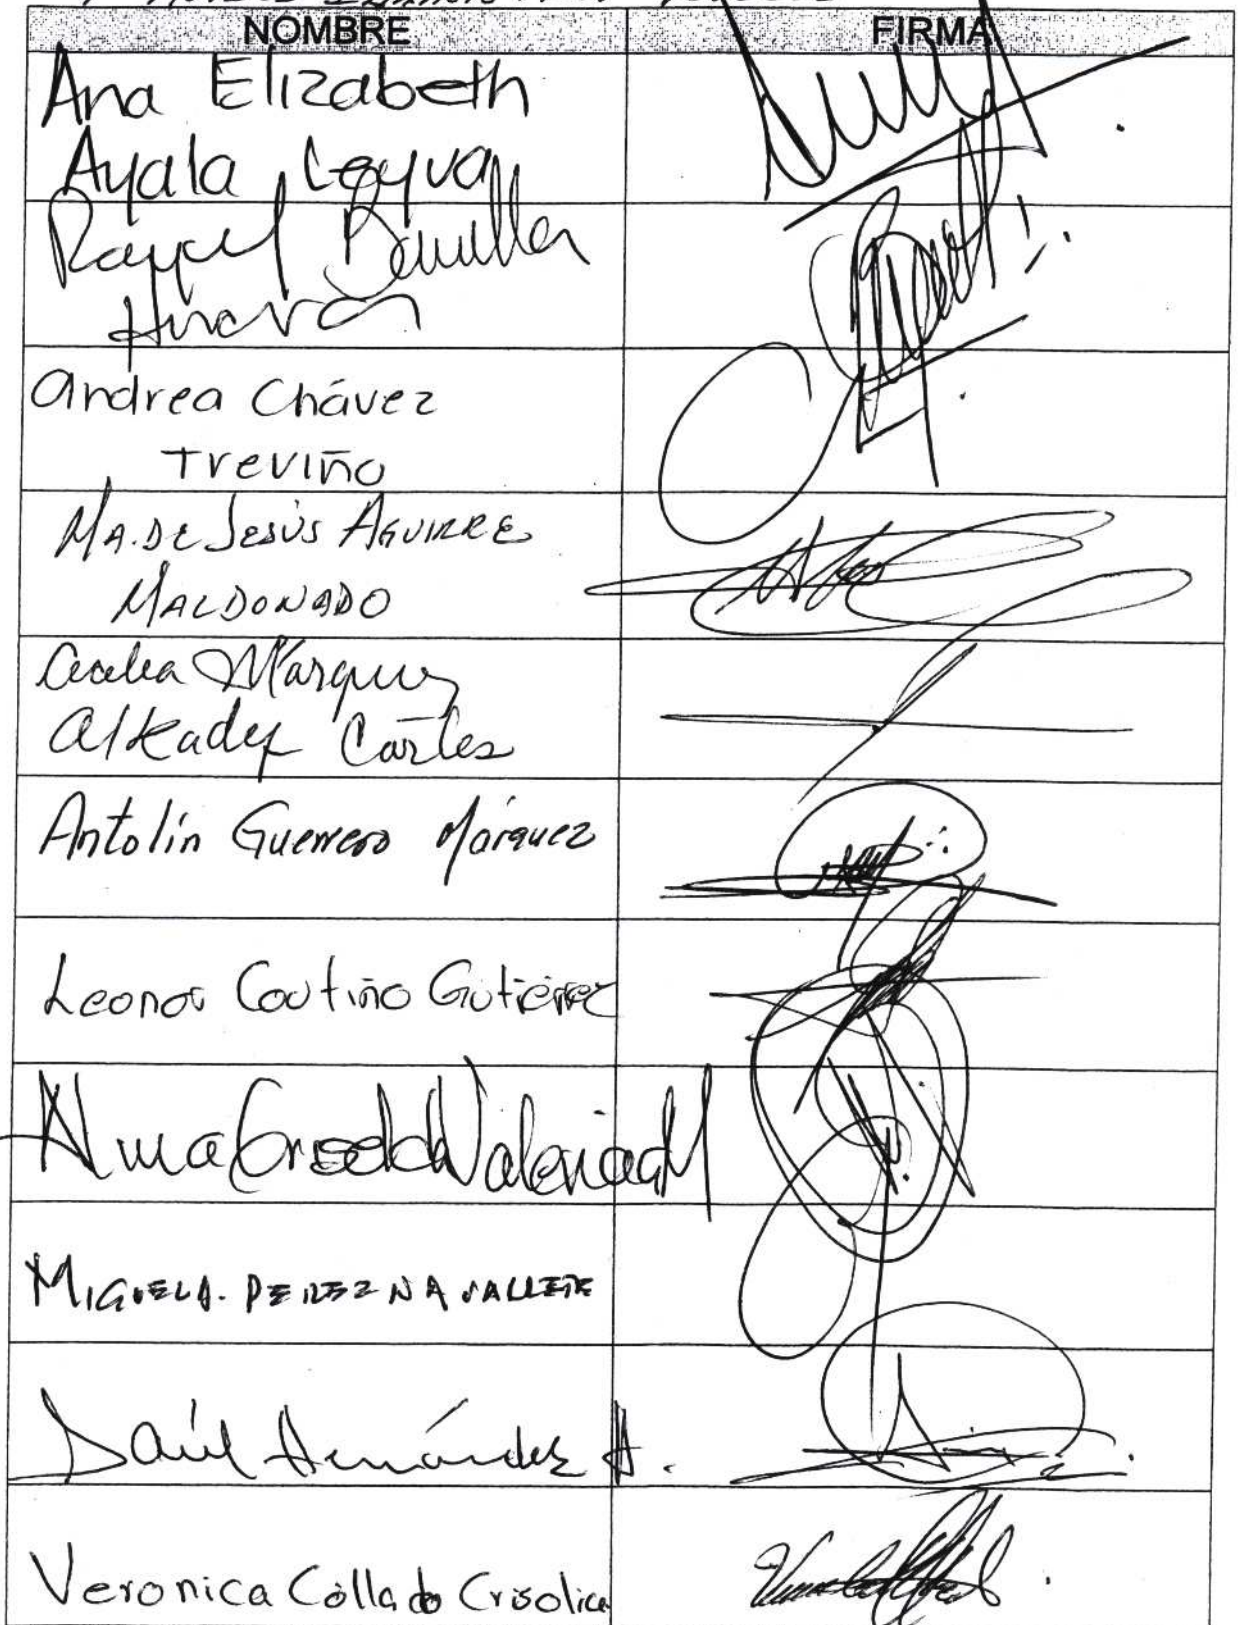 NOMBRE FIRMA
Ana Elizabeth
Ayala Leyva
Raquel Bonilla
Herrera
Andrea Chávez
Treviño
MA. DE JESÚS AGUIRRE
MALDONADO
Márquez
Alkadef Cortes
Antolín Guerrero Márquez
Leonor Coutiño Gutiérrez
Alma Griselda Valencia M
MIGUEL A. PEREZ NAVARRETE
Saúl Hernández H.
Veronica Collado Crisolia